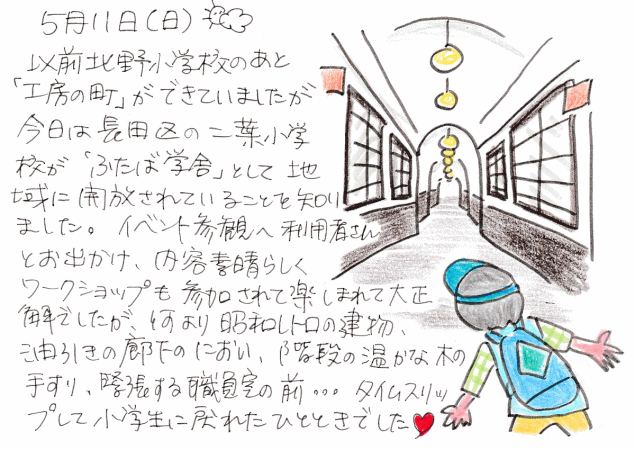 5月11日(日)
以前北野小学校のあと
「工房の町」ができていましたが
今日は長田区の二葉小学
校が「ふたば学舎」として地
域に開放されていることを知り
ました。イベント参観へ利用者さん
とお出かけ、内容素晴らしく
ワークショップも参加されて楽しまれて大正
解でしたが、何より昭和レトロの建物、
油引きの廊下のにおい、階段の温かな木の
手すり、緊張する職員室の前…タイムスリッ
プして小学生に戻れたひとときでした